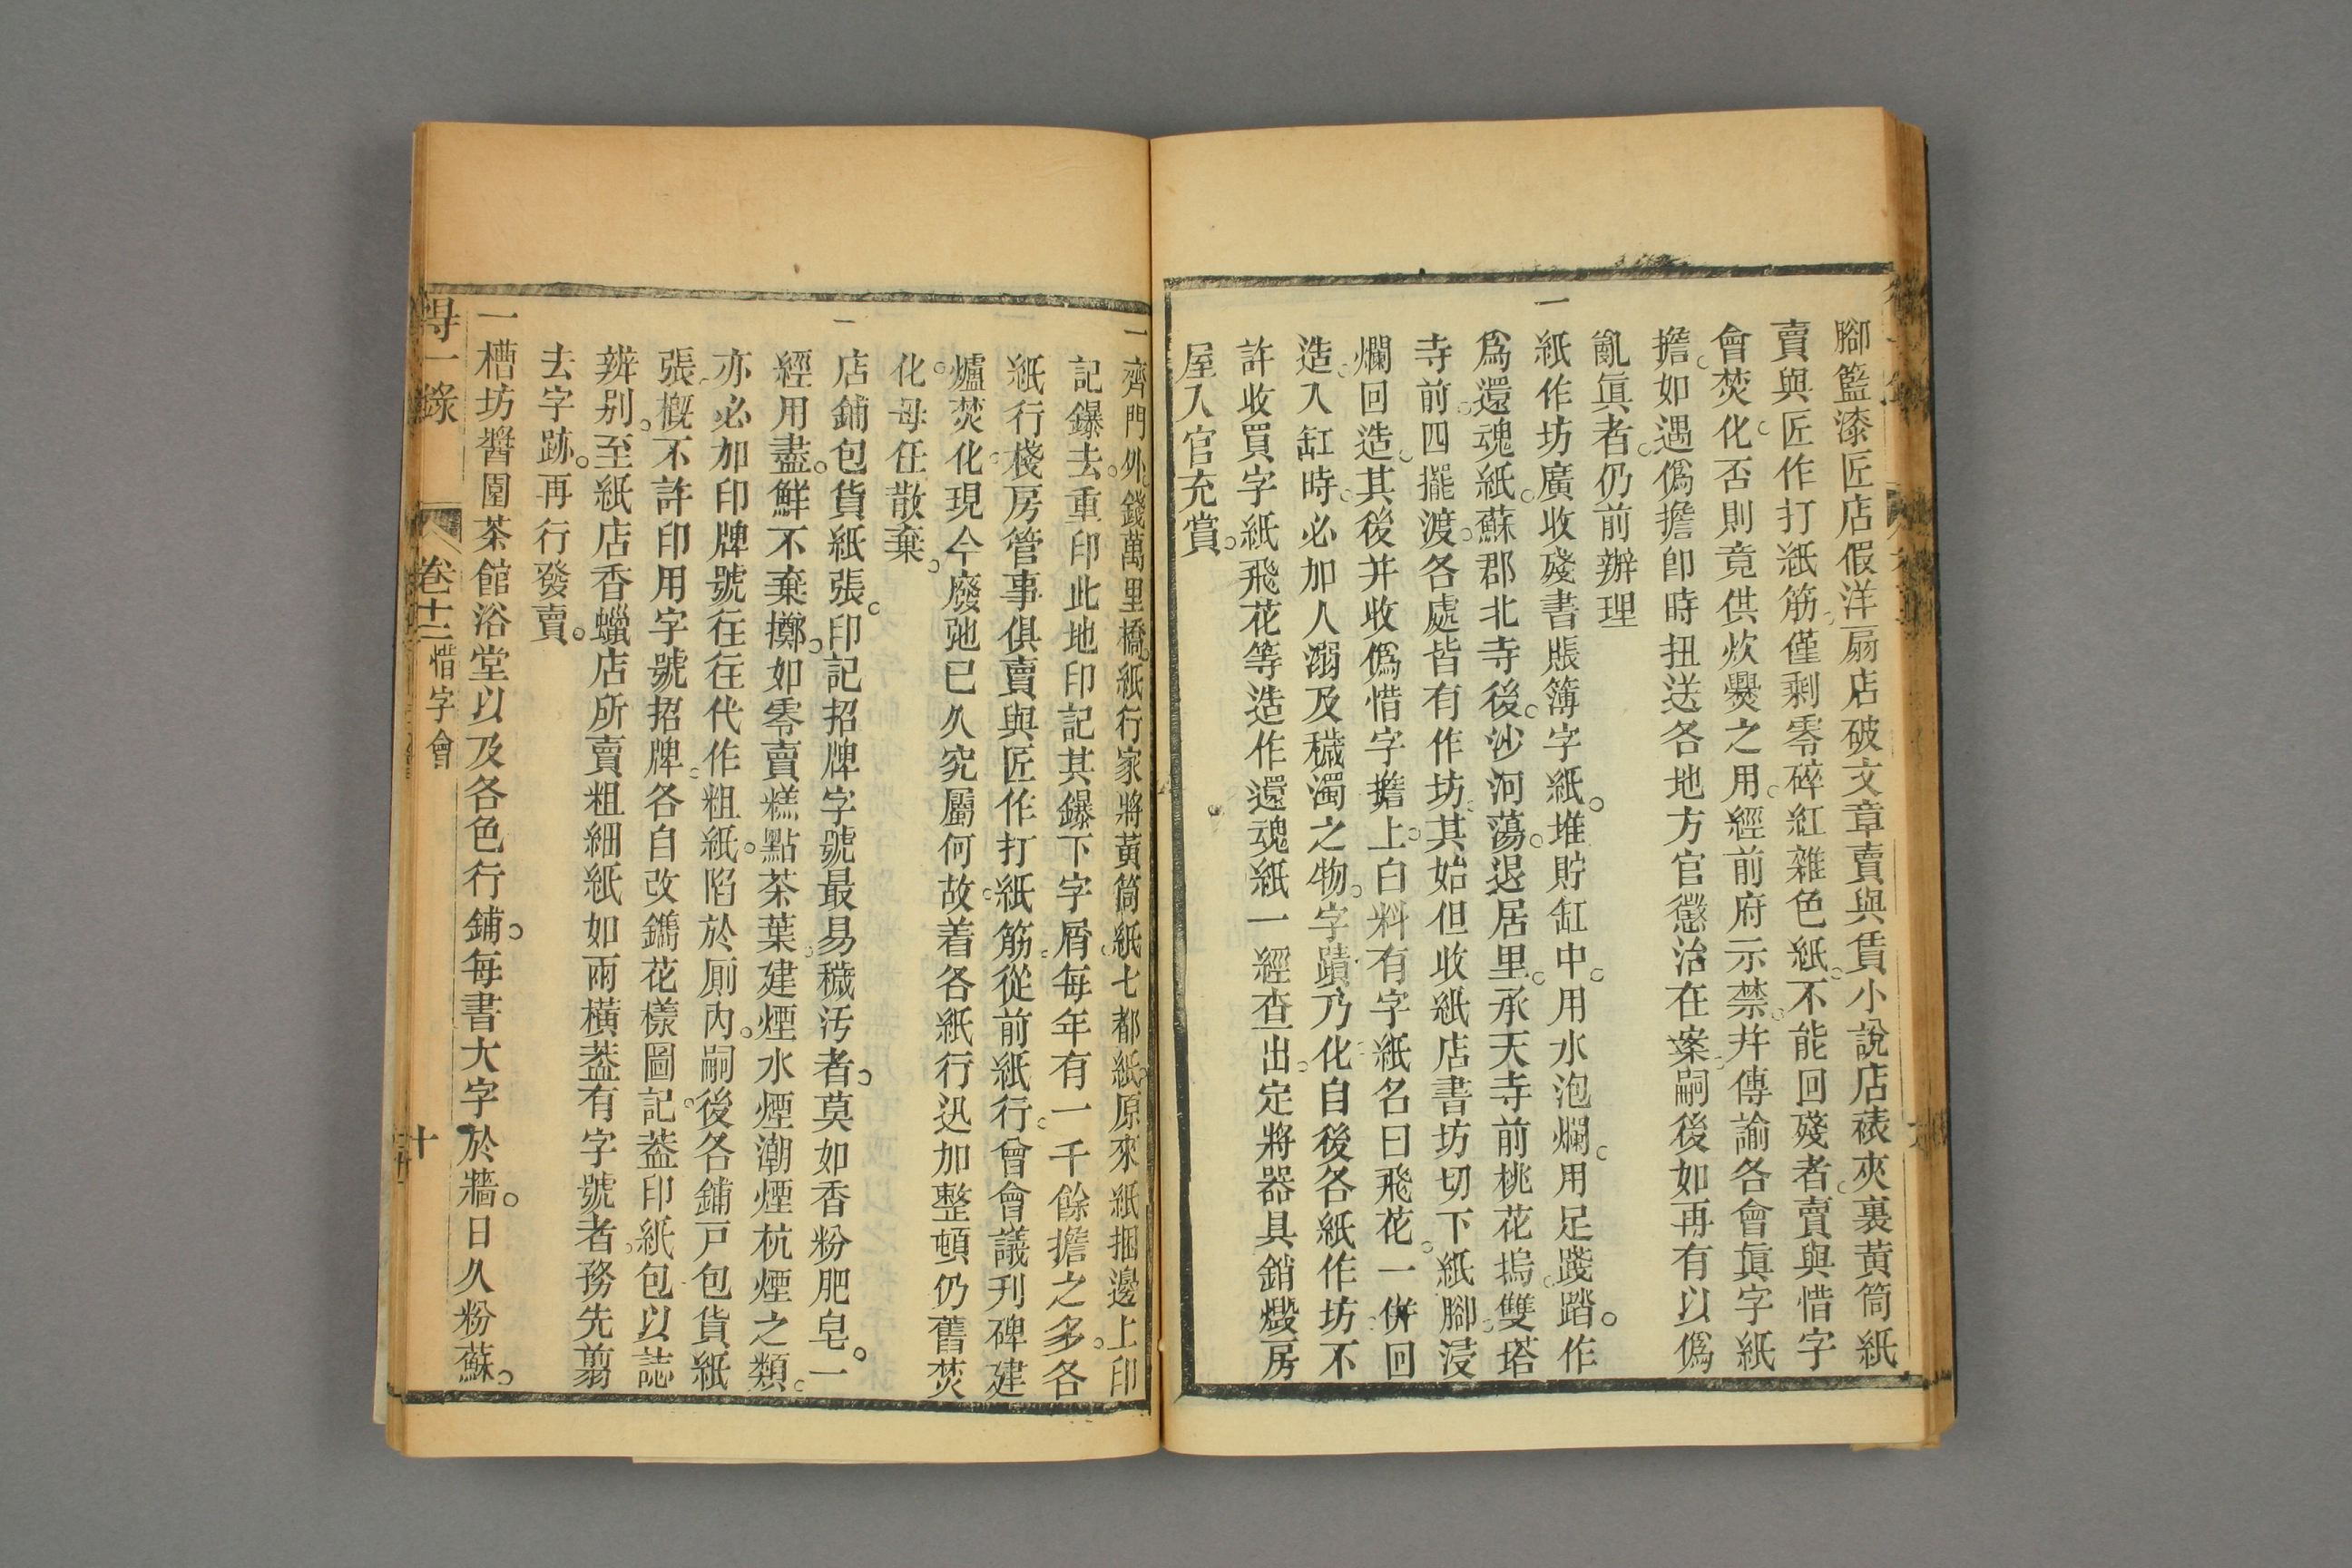 腳籃漆匠店假洋扇店破文章賣與賃小說店裱夾裏黃筒紙
賣與匠作打紙筋僅剩零碎紅雜色紙。不能回殘者。賣與惜字
會焚化。否則竟供炊爨之用。經前府示禁。幷傳諭各會眞字紙
擔。如遇僞擔卽時扭送各地方官懲治在案。嗣後如再有以僞
亂眞者。仍前辦理
一紙作坊廣收殘書賬簿字紙。堆貯缸中。用水泡爛。用足踐踏。作
爲還魂紙。蘇郡北寺後。沙河蕩。退居里。承天寺前桃花塢。雙塔
寺前。四擺渡。各處皆有作坊。其始但收紙店書坊切下紙腳。浸
爛回造。其後幷收僞惜字擔上。白料有字紙名曰飛花。一倂回
造。入缸時。必加人溺及穢濁之物。字蹟乃化。自後各紙作坊。不
許收買字紙飛花等造作還魂紙一經查出。定將器具銷燬房
屋入官充賞。
一齊門外。錢萬里橋。紙行家將黃筒紙。七都紙。原來紙捆邊上印
記鑤去。重印此地印記其鑤下字屑每年有一千餘擔之多。各
紙行棧房管事俱賣與匠作打紙筋。從前紙行。曾會議刋碑建
爐焚化。現今廢弛已久究屬何故着各紙行迅加整頓仍舊焚
化。毋任散棄。
一店鋪包貨紙張。印記招牌字號最易穢汚者。莫如香粉肥皂。一
經用盡。鮮不棄擲。如零賣糕點茶葉。建煙水煙潮煙杭煙之類。
亦必加印牌號往往代作粗紙。陷於厠內。嗣後各鋪戸包貨紙
張。槪不許印用字號招牌。各自改鐫花樣圖記。葢印紙包以誌
辨別。至紙店香蠟店所賣粗細紙如兩橫葢有字號者。務先翦
去字跡。再行發賣。
一槽坊醬園茶館浴堂以及各色行鋪。每書大字於牆。日久粉蘇。
得一錄
卷十二
惜字會
十